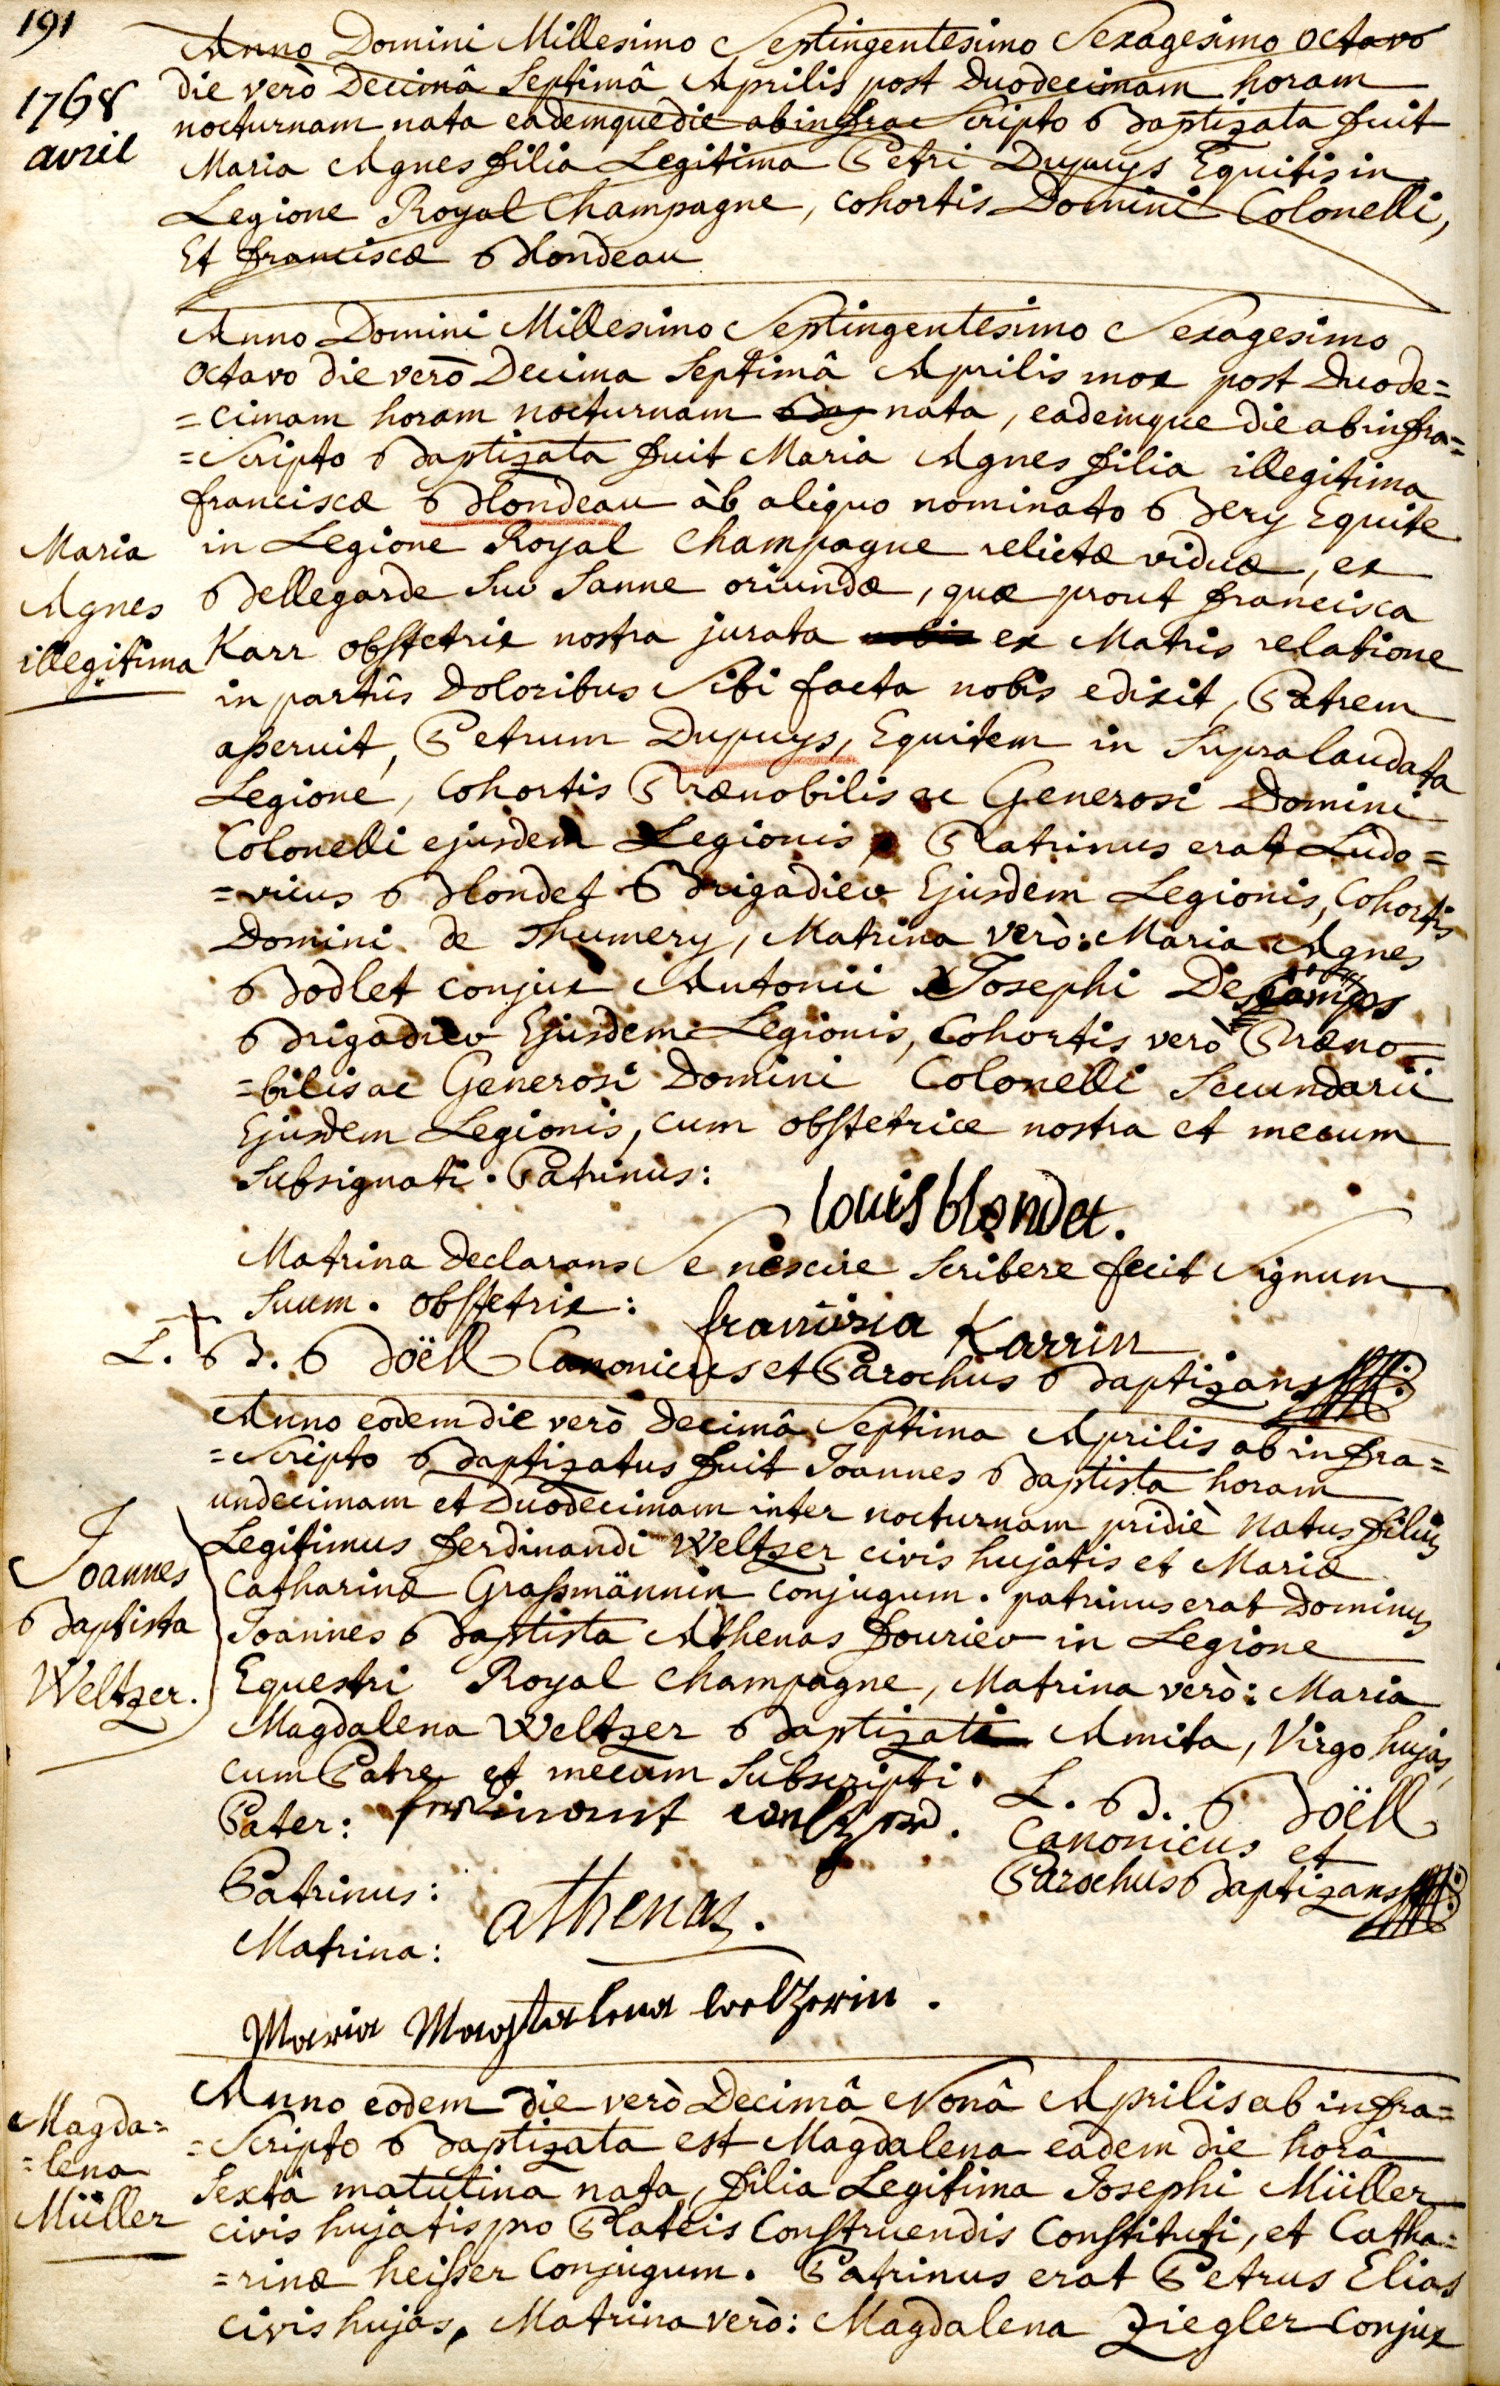 191
1768
avril
Anno Domini Millesimo Septingentesimo Sexagesimo octavo
die verò Decimâ Septimâ Aprilis post Duodecimam horam
nocturnam nata eademque die ab infra Scripto Baptizata fuit
Maria Agnes filia Legitima Petri Dupuys Equitis in
Legione Royal Champagne, cohortis Domini Colonelli,
Et franciscæ Blondeau
Anno Domini Millesimo Septingentesimo Sexagesimo
octavo die verò Decima Septimâ Aprilis mox post Duode=
=cimam horam nocturnam Bap nata, eademque die ab infra=
=Scripto Baptizata fuit Maria Agnes filia illegitima
franciscæ Blondeau àb aliquo nominato Bery Equite
in Legione Royal Champagne relictæ viduæ, ex
Bellegarde Sur Sanne oriundæ, quæ prout francisca
Karr obstetrix nostra jurata nobis ex Matris relatione
in partûs Doloribus Sibi facta nobis edixit, Patrem
asseruit, Petrum Dupuys, Equitem in Supralaudata
Legione, Cohortis Prænobilis ac Generosi Domini
Colonelli ejusdem Legionis, Patrinus erat Ludo=
=vicus Blondet Brigadier Ejusdem Legionis, Cohortis
Domini de Thumery, Matrina verò: Maria Agnes
Bodlet conjux Antonii Josephi Descamps
Brigadier Ejusdem Legionis, Cohortis verò Præno=
=bilis ac Generosi Domini Colonelli Secundarii
Ejusdem Legionis, cum obstetrice nostra et mecum
Subsignati. Patrinus:
louis blondet.
Matrina Declarans Se nescire Scribere fecit Signum
Suum. obstetrix: francisca Karrin
L. B. Boëll Canonicus et Parochus Baptizans
Maria
Agnes
illegitima
Anno eodem die verò Decimâ Septima Aprilis ab infra=
=Scripto Baptizatus fuit Joannes Baptista horam
undecimam et Duodecimam inter nocturnam pridiè Natus filius
Legitimus ferdinandi Weltzer civis hujatis et Mariæ
Catharinæ Grassmännin conjugum. patrinus erat Dominus
Joannes Baptista Athenas fourier in Legione
Equestri Royal Champagne, Matrina verò: Maria
Magdalena Weltzer Baptizati Amita, Virgo hujas,
cum Patre et mecum Subscripti.
Joannes
Baptista
Weltzer.
Pater:
L. B. Boëll
Canonicus et
Parochus Baptizans
Patrinus:
athenas.
Matrina:
Maria Magdalena Weltzerin.
Anno eodem die verò Decimâ Nonâ Aprilis ab infra=
=Scripto Baptizata est Magdalena eadem die horâ
Sextâ matutina nata, filia Legitima Josephi Müller
civis hujatis pro Plateis Construendis Constituti, et Catha=
=rinæ heisser Conjugum. Patrinus erat Petrus Elias
civis hujas, Matrina verò: Magdalena Ziegler Conjux
Magda=
=lena
Müller